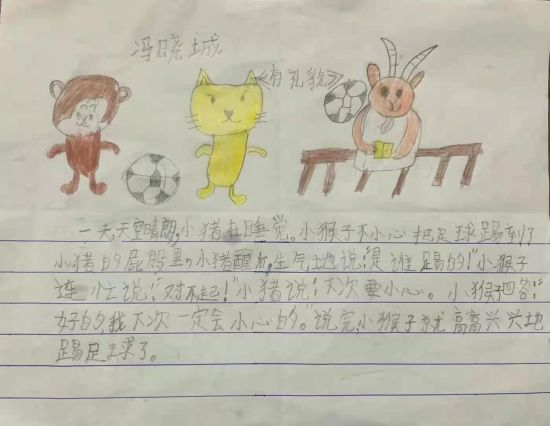 冯晓城
《有礼貌》
一天天空晴朗,小猪在睡觉。小猴子不小心把足球踢到了
小猪的屁股里。小猪醒了,生气地说:"是谁踢的!"小猴子
连忙说:"对不起!"小猪说:"下次要小心。小猴子回答:"
好的,我下次一定会小心的。"说完,小猴子就高高兴兴地
踢足球了。